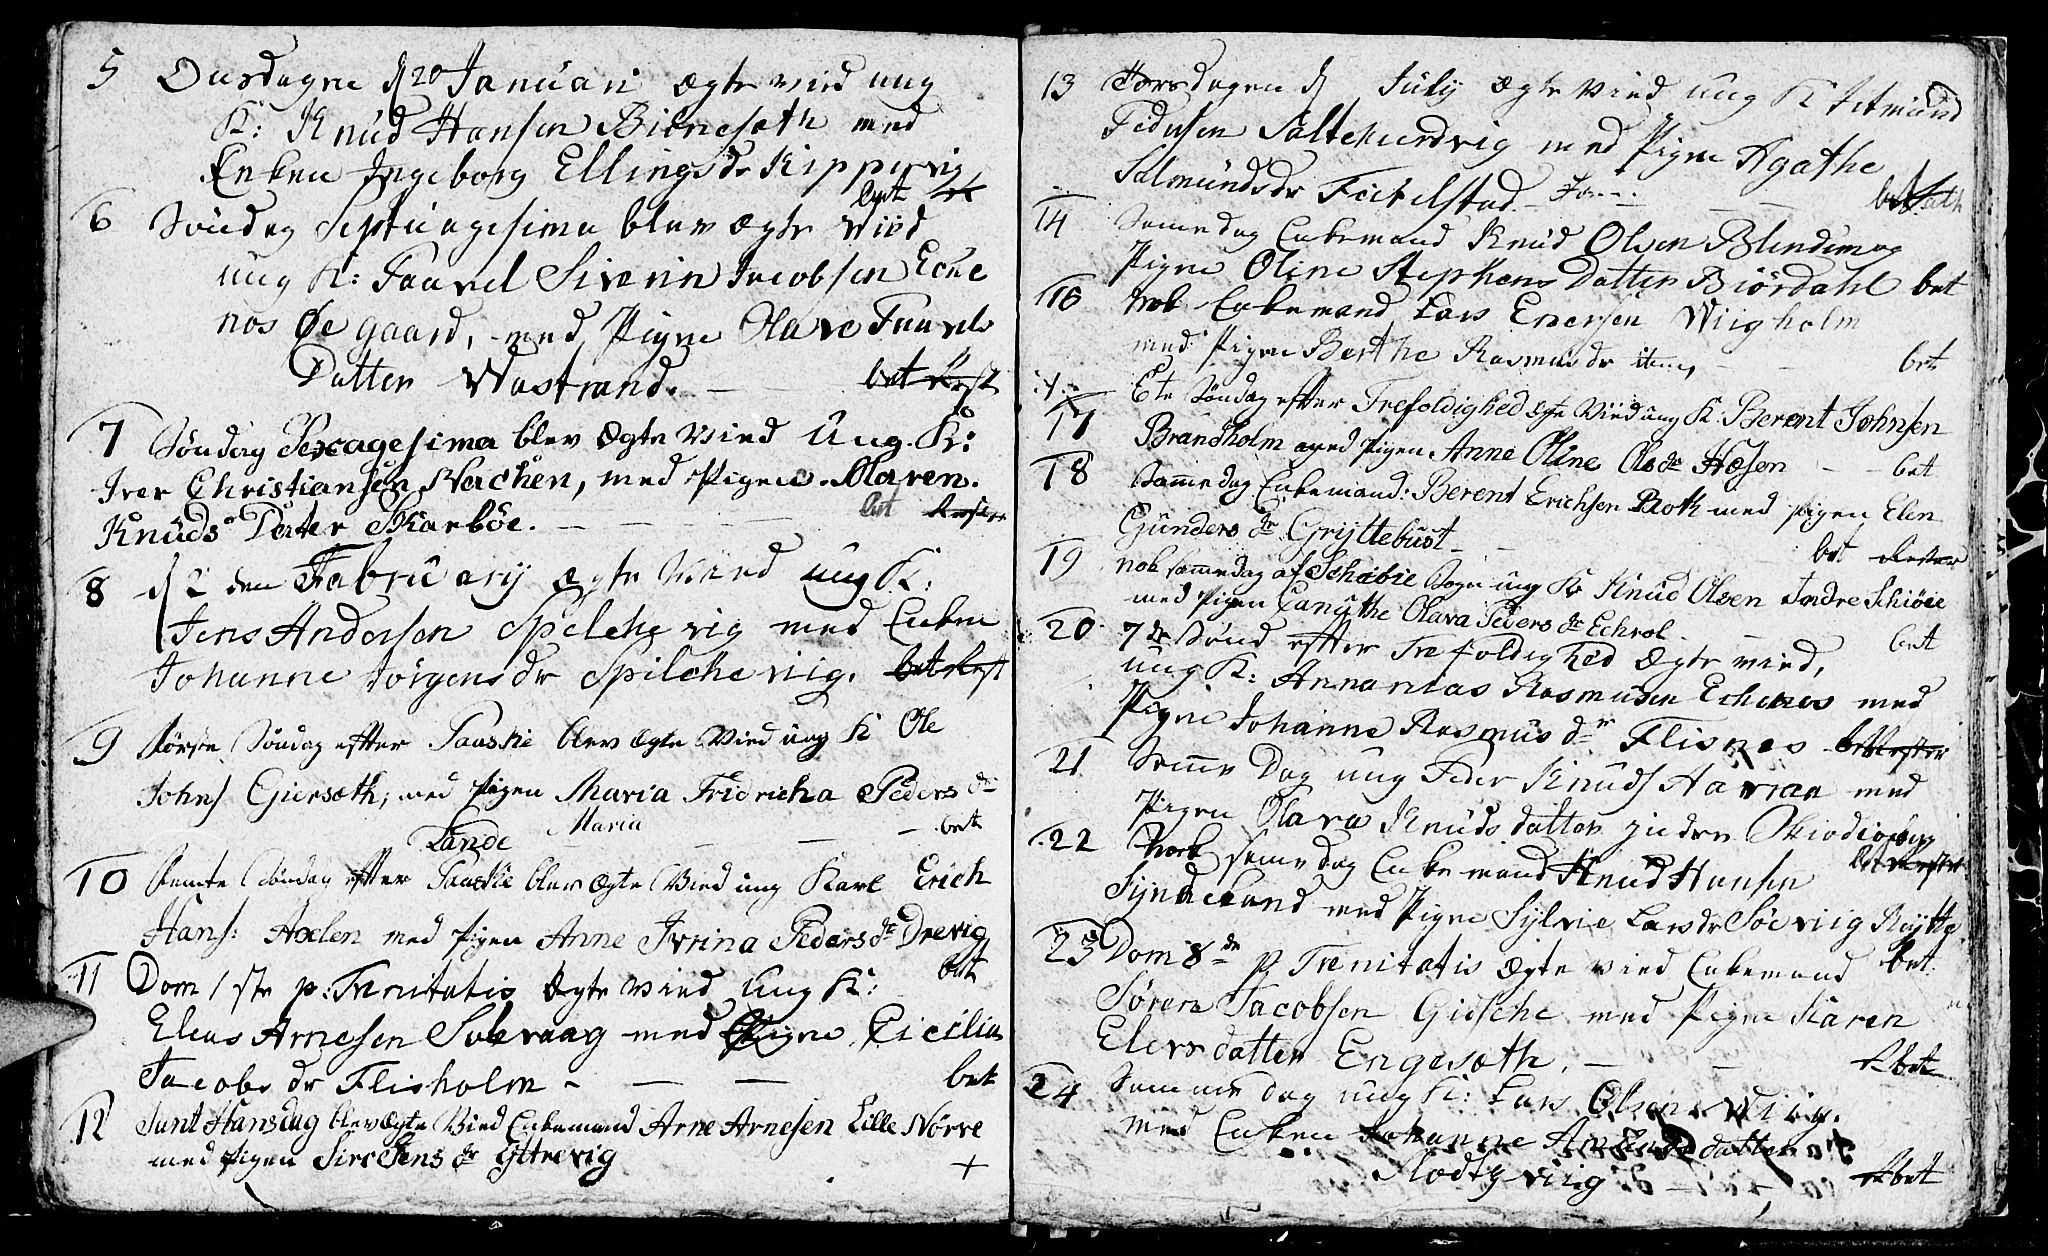 5 Onsdagen d 20 Januari ægte vied ung
K: Knud Hansen Biørnesæth med
Enken Ingeborg Ellingsdr Kippervig
bet
6 Søndag Septuagesima blev ægte viid
ung K: Paavel Siverin Jacobsen Eche
nos Øegaard, med Pigen Olave Paavels
Datter Wastrand. — — bet Rest
7 Søndag Sexagesima blev Ægte Vied Ung. K:
Iver Christiansen Nachen, med Pigen Maren
Knuds Dater Skarbøe. — — — bet
8 d 2 den Fabruarij ægte Vied ung K:
Jens Andersen Spelchevig med Enken
Johanne Jørgensdr Spilchevig. bet Rest
9 Første Søndag efter Paaske blev ægte Vied ung K Ole
Johns Giersæth; med Pigen Maria Fridricha Peders dr
Lande Maria — — — bet
10 Femte Søndag efter Paaske blev ægte Vied ung Karl Erich
Hans: Axlen med Pigen Anne Ivrina Peders dr Drevig
11 Dom 1 ste p: Trinitatis Ægte vied Ung K: bet
Elias Arnesen Sulevaag med Pigen Cicilia
Jacobs dr Flisholm — — — bet
12 Sant Hansdag blev ægte Vied Enkemand Arne Arnesen Lille Nørve
med Pigen Siri Jens dr Yttrevig +
13 Torsdagen d July ægte Vied ung K
Pedersen med Pigen Agathe
Salmundsdr Feitelstad — — bet
14 Samedag Enkemand Knud Olsen Blindem og
Pigen Oline Stephens Datter Biørdahl bet
16 nok Enkemand Lars Wiigholm
med Pigen Berthe Rasmusdr item, — — bet
17 6te Søndag efter Trefoldighed ægte Viid ung K. Berent Johnsen
Brandholm med Pigen Anne Oline Ols dr Hæsen — — bet
18 Sammedag Enkemand: Berent Erichsen med Pigen Elen
Gunders dr Gryttebust — bet Rester
19 nok sammedag af Schabie Sogn ung K Knud Olsen Indre Schiøee
med Pigen Canuthe Olava Peders dr Echrol — bet
20 7de Sønd efter Trefoldighed Ægte vied,
ung K: Annanias Rasmusen Echenes med
Pigen Johanne Rasmus dr Flisnes bet Rester
21 Samme Dag ung Peder Knuds Havran med
Pigen Olava Knuds datter
22 Nock same dag Enkemand Knud Hansen bet
Synde med Pigen Sylvie Larsdr Søeviig
23 Dom 8 de p Trenitatis Ægte vied Enkemand bet
Søren Jacobsen Gidsche med Pigen Karen
Elers datter Engesæth. — — bet
24 Samme dag ung K: Lars Olsen Wiig.
med Enken Johanne datter
viig — — bet